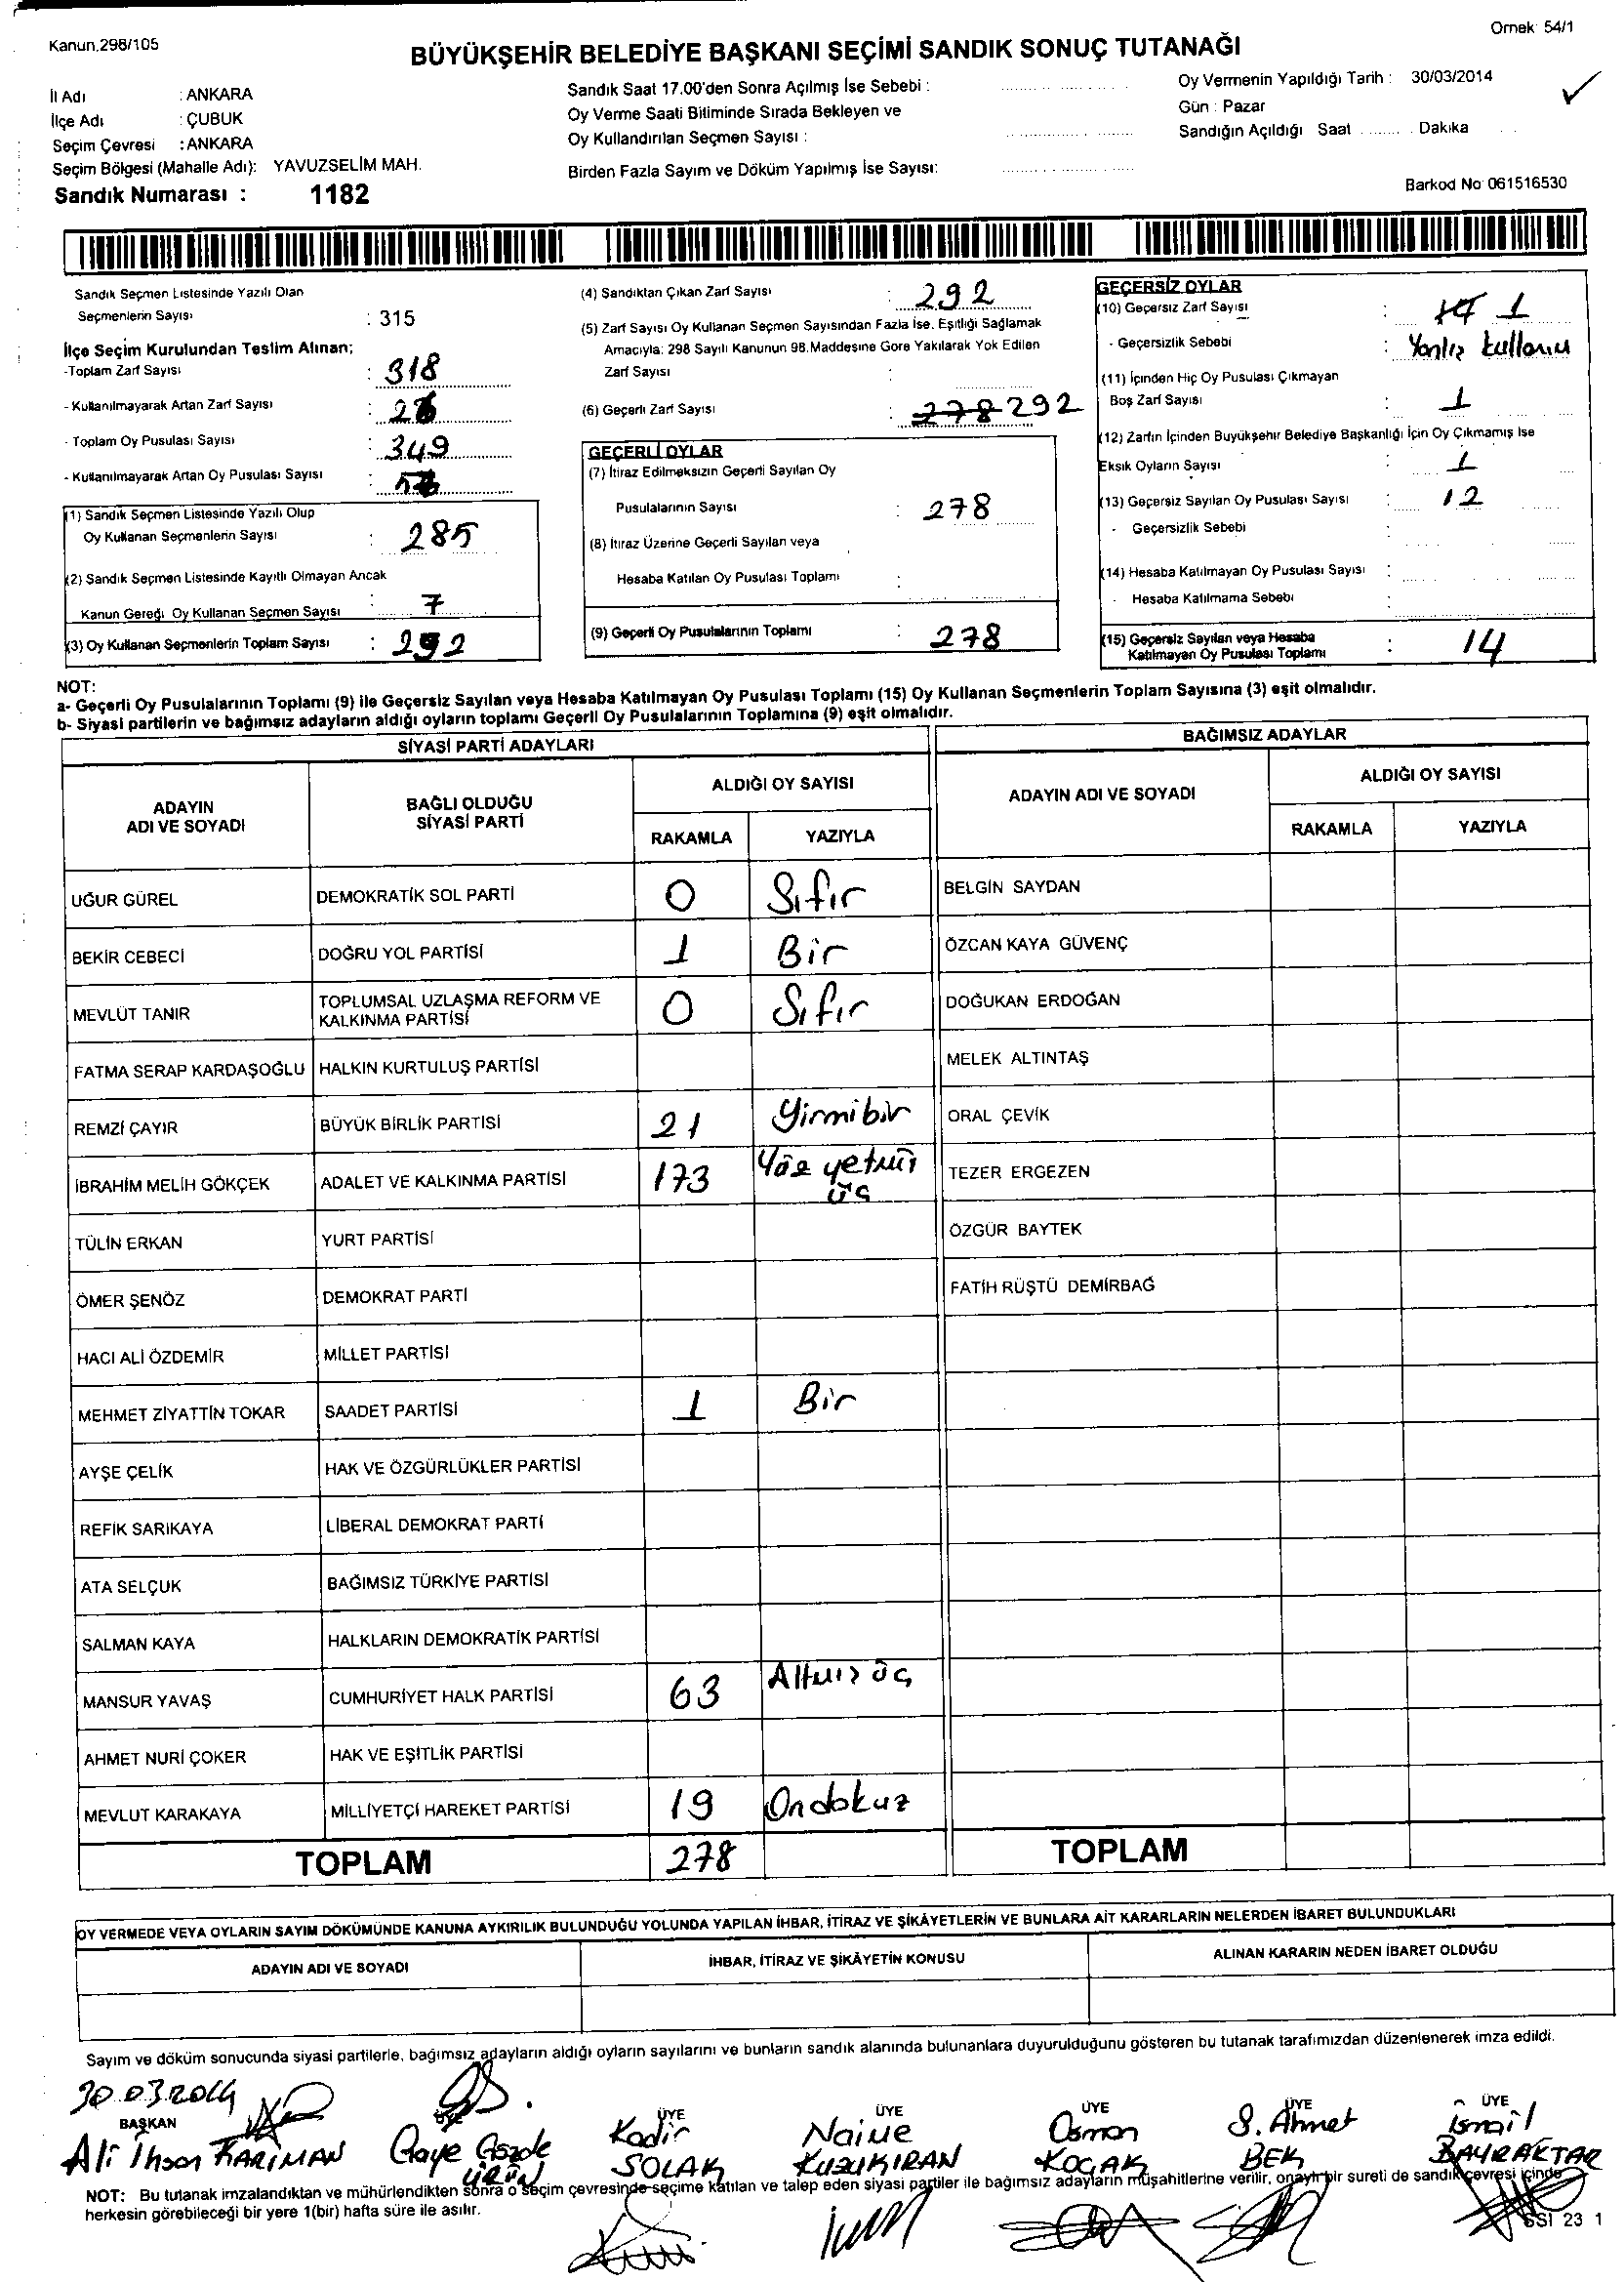 Kanun.298/105
Örnek: 54/1
BÜYÜKŞEHİR BELEDİYE BAŞKANI SEÇİMİ SANDIK SONUÇ TUTANAĞI
İl Adı : ANKARA
İlçe Adı : ÇUBUK
Seçim Çevresi : ANKARA
Seçim Bölgesi (Mahalle Adı): YAVUZSELİM MAH.
Sandık Numarası : 1182
Sandık Saat 17.00'den Sonra Açılmış İse Sebebi :
Oy Verme Saati Bitiminde Sırada Bekleyen ve
Oy Kullandırılan Seçmen Sayısı :
Birden Fazla Sayım ve Döküm Yapılmış İse Sayısı:
Oy Vermenin Yapıldığı Tarih : 30/03/2014
Gün : Pazar
Sandığın Açıldığı Saat ........ Dakika
Barkod No: 061516530
Sandık Seçmen Listesinde Yazılı Olan
Seçmenlerin Sayısı : 315
İlçe Seçim Kurulundan Teslim Alınan;
-Toplam Zarf Sayısı : 318
- Kullanılmayarak Artan Zarf Sayısı :
- Toplam Oy Pusulası Sayısı : 349
- Kullanılmayarak Artan Oy Pusulası Sayısı :
(1) Sandık Seçmen Listesinde Yazılı Olup
Oy Kullanan Seçmenlerin Sayısı : 285
(2) Sandık Seçmen Listesinde Kayıtlı Olmayan Ancak
Kanun Gereği Oy Kullanan Seçmen Sayısı : 7
(3) Oy Kullanan Seçmenlerin Toplam Sayısı : 292
(4) Sandıktan Çıkan Zarf Sayısı : 292
(5) Zarf Sayısı Oy Kullanan Seçmen Sayısından Fazla İse, Eşitliği Sağlamak
Amacıyla; 298 Sayılı Kanunun 98.Maddesine Göre Yakılarak Yok Edilen
Zarf Sayısı :
(6) Geçerli Zarf Sayısı : 278 292
GEÇERLİ OYLAR
(7) İtiraz Edilmeksizin Geçerli Sayılan Oy
Pusulalarının Sayısı : 278
(8) İtiraz Üzerine Geçerli Sayılan veya
Hesaba Katılan Oy Pusulası Toplamı :
(9) Geçerli Oy Pusulalarının Toplamı : 278
GEÇERSİZ OYLAR
(10) Geçersiz Zarf Sayısı : 1
- Geçersizlik Sebebi : Yanlış kullanım
(11) İçinden Hiç Oy Pusulası Çıkmayan
Boş Zarf Sayısı : 1
(12) Zarfın İçinden Büyükşehir Belediye Başkanlığı İçin Oy Çıkmamış İse
Eksik Oyların Sayısı : 1
(13) Geçersiz Sayılan Oy Pusulası Sayısı : 12
- Geçersizlik Sebebi :
(14) Hesaba Katılmayan Oy Pusulası Sayısı :
- Hesaba Katılmama Sebebi :
(15) Geçersiz Sayılan veya Hesaba
Katılmayan Oy Pusulası Toplamı : 14
NOT:
a- Geçerli Oy Pusulalarının Toplamı (9) ile Geçersiz Sayılan veya Hesaba Katılmayan Oy Pusulası Toplamı (15) Oy Kullanan Seçmenlerin Toplam Sayısına (3) eşit olmalıdır.
b- Siyasi partilerin ve bağımsız adayların aldığı oyların toplamı Geçerli Oy Pusulalarının Toplamına (9) eşit olmalıdır.
SİYASİ PARTİ ADAYLARI
BAĞIMSIZ ADAYLAR
ADAYIN ADI VE SOYADI
BAĞLI OLDUĞU SİYASİ PARTİ
ALDIĞI OY SAYISI
RAKAMLA YAZIYLA
ADAYIN ADI VE SOYADI
ALDIĞI OY SAYISI
RAKAMLA YAZIYLA
UĞUR GÜREL DEMOKRATİK SOL PARTİ 0 Sıfır BELGİN SAYDAN
BEKİR CEBECİ DOĞRU YOL PARTİSİ 1 Bir ÖZCAN KAYA GÜVENÇ
MEVLÜT TANIR TOPLUMSAL UZLAŞMA REFORM VE KALKINMA PARTİSİ 0 Sıfır DOĞUKAN ERDOĞAN
FATMA SERAP KARDAŞOĞLU HALKIN KURTULUŞ PARTİSİ MELEK ALTINTAŞ
REMZİ ÇAYIR BÜYÜK BİRLİK PARTİSİ 21 Yirmibir ORAL ÇEVİK
İBRAHİM MELİH GÖKÇEK ADALET VE KALKINMA PARTİSİ 173 Yüz yetmiş üç TEZER ERGEZEN
TÜLİN ERKAN YURT PARTİSİ ÖZGÜR BAYTEK
ÖMER ŞENÖZ DEMOKRAT PARTİ FATİH RÜŞTÜ DEMİRBAĞ
HACI ALİ ÖZDEMİR MİLLET PARTİSİ
MEHMET ZİYATTİN TOKAR SAADET PARTİSİ 1 Bir
AYŞE ÇELİK HAK VE ÖZGÜRLÜKLER PARTİSİ
REFİK SARIKAYA LİBERAL DEMOKRAT PARTİ
ATA SELÇUK BAĞIMSIZ TÜRKİYE PARTİSİ
SALMAN KAYA HALKLARIN DEMOKRATİK PARTİSİ
MANSUR YAVAŞ CUMHURİYET HALK PARTİSİ 63 Altmış üç
AHMET NURİ ÇOKER HAK VE EŞİTLİK PARTİSİ
MEVLUT KARAKAYA MİLLİYETÇİ HAREKET PARTİSİ 19 Ondokuz
TOPLAM 278 TOPLAM
OY VERMEDE VEYA OYLARIN SAYIM DÖKÜMÜNDE KANUNA AYKIRILIK BULUNDUĞU YOLUNDA YAPILAN İHBAR, İTİRAZ VE ŞİKÂYETLERİN VE BUNLARA AİT KARARLARIN NELERDEN İBARET BULUNDUKLARI
ADAYIN ADI VE SOYADI İHBAR, İTİRAZ VE ŞİKÂYETİN KONUSU ALINAN KARARIN NEDEN İBARET OLDUĞU
Sayım ve döküm sonucunda siyasi partilerle, bağımsız adayların aldığı oyların sayılarını ve bunların sandık alanında bulunanlara duyurulduğunu gösteren bu tutanak tarafımızdan düzenlenerek imza edildi.
30.03.2014
BAŞKAN ÜYE ÜYE ÜYE ÜYE ÜYE ÜYE
Ali İhsan KARİMAN Gaye Gözde ÜRÜN Kadir SOLAK Naime KUZUKIRAN Osman KOÇAK S. Ahmet BEK İsmail BAYRAKTAR
NOT: Bu tutanak imzalandıktan ve mühürlendikten sonra o seçim çevresinde seçime katılan ve talep eden siyasi partiler ile bağımsız adayların müşahitlerine verilir, onaylı bir sureti de sandık çevresi içinde
herkesin görebileceği bir yere 1(bir) hafta süre ile asılır.
SSI 23 1